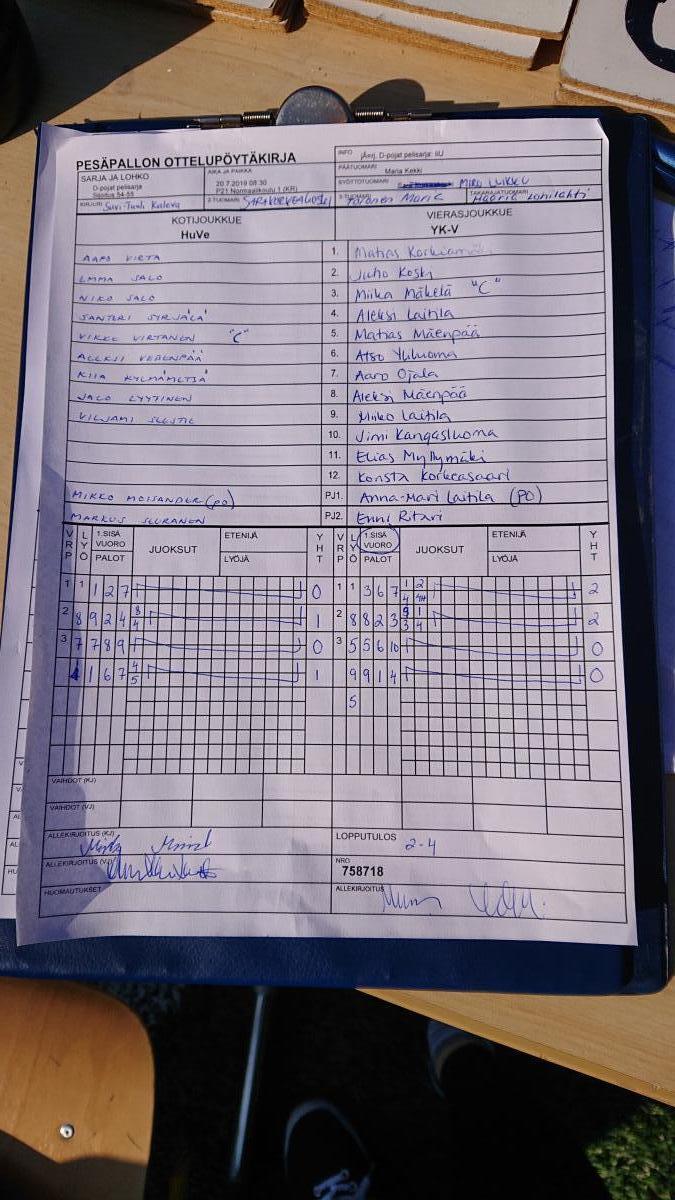 PESÄPALLON OTTELUPÖYTÄKIRJA
INFO jÄrrj. D-pojat pelisarja: IiU
SARJA JA LOHKO
D-pojat pelisarja
Sijoitus 54-55
AIKA JA PAIKKA
20.7.2019 08:30
P21 Normaalikoulu 1 (KR)
PÄÄTUOMARI Maria Kekki
SYÖTTÖTUOMARI MIRO
KIRJURI Suvi-Tuuli Kaleva
2-TUOMARI
3-TUOMARI
TAKARAJATUOMARI
KOTIJOUKKUE
HuVe
VIERASJOUKKUE
YK-V
AARO VIRTA 1. Matias
EMMA SALO 2. Juho Koski
NIKO SALO 3. Miika Mäkelä "C"
SANTERI SYRJÄLÄ 4. Aleksi Laitila
VIKKE VIRTANEN "C" 5. Matias Mäenpää
ALEKSI VEHENPÄÄ 6. Atso Yliluoma
KIIA KYLMÄMETSÄ 7. Aaro Ojala
JALO LYYTINEN 8. Aleksi Mäenpää
VILJAMI 9. Miiko Laitila
10. Jimi Kangasluoma
11. Elias Myllymäki
12. Konsta Korkeasaari
MIKKO MOISANDER (PO) PJ1. Anna-Mari Laitila (PO)
MARKUS PJ2. Enni Ritari
VRP LYÖ 1.SISÄ VUORO PALOT JUOKSUT ETENIJÄ LYÖJÄ YHT VRP LYÖ 1.SISÄ VUORO PALOT JUOKSUT ETENIJÄ LYÖJÄ YHT
1 1 1 2 7 0 1 1 3 6 7 1/4 2/4 2
2 8 9 2 4 8/4 1 2 8 8 2 3 9/3 1/4 2
3 7 7 8 9 0 3 5 5 6 10 0
4 1 6 7 4/5 1 9 9 1 4 0
5
VAIHDOT (KJ)
VAIHDOT (VJ)
ALLEKIRJOITUS (KJ)
LOPPUTULOS 2-4
ALLEKIRJOITUS (VJ)
NRO
758718
HUOMAUTUKSET
ALLEKIRJOITUS